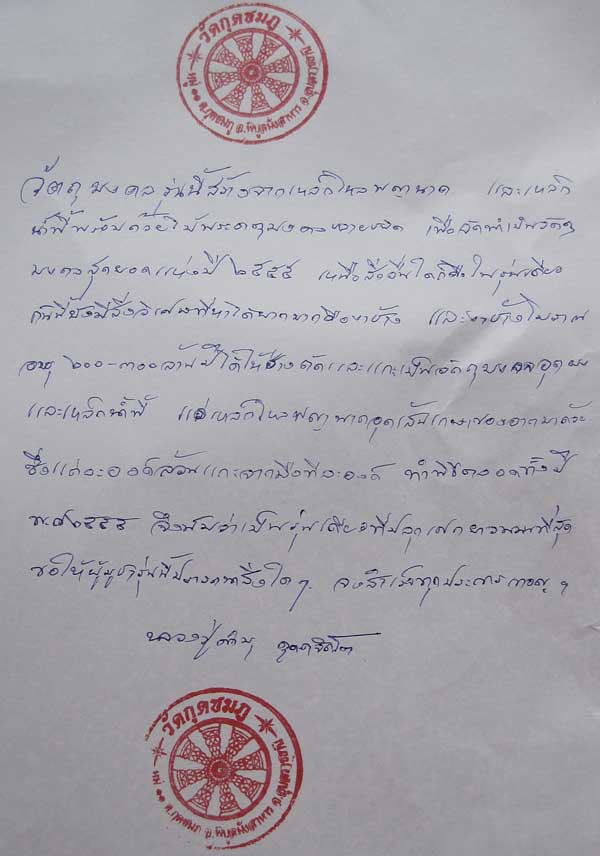 วัดกุดชมภู
หมู่ ๑๑ ต.กุดชมภู อ.พิบูลมังสาหาร จ.อุบลราชธานี
วัตถุมงคลรุ่นนี้สร้างจากเหล็กไหลพญานาค และเหล็ก
น้ำพี้พร้อมด้วย พระธาตุ เพื่อจัดทำเป็นวัตถุ
มงคลสุดยอดแห่งปี ๒๕๕๕ เหนือสิ่งอื่นใดก็คือในรุ่นเดียว
กันนี้ยังมีสิ่งวิเศษที่หาได้ยากมากคืองาช้าง และงาช้างโบราณ
อายุ ๒๐๐-๓๐๐ล้านปี ได้ให้ช่างตัดและแกะเป็นวัตถุมงคล
และเหล็กน้ำพี้ แร่เหล็กไหลพญานาคอุดเส้นเกษาของอาตมาด้วย
ซึ่งแต่ละองค์ล้วนแกะจากมือทีละองค์ ทำพิธีตลอดทั้งปี
พ.ศ๒๕๕๕ จึงนับว่าเป็นรุ่นเดียวที่ปลุกเสกยาวนานที่สุด
ขอให้ผู้บูชารุ่นนี้ปรารถนาสิ่งใดๆ จงสำเร็จทุกประการ
หลวงปู่คำบุ คุตฺตจิตฺโต
วัดกุดชมภู
หมู่ ๑๑ ต.กุดชมภู อ.พิบูลมังสาหาร จ.อุบลราชธานี